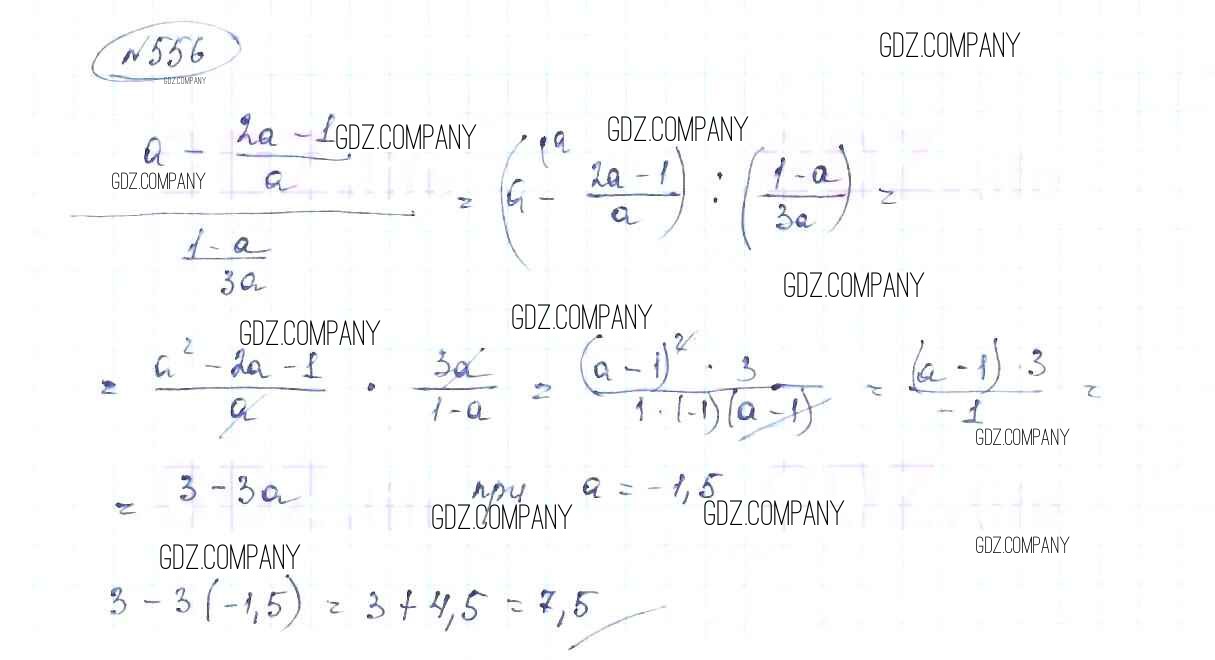 №556
GDZ.COMPANY
GDZ.COMPANY
a - (2a - 1)/a / (1 - a)/3a = (a^a - (2a - 1)/a) : ((1 - a)/3a) =
GDZ.COMPANY
GDZ.COMPANY
GDZ.COMPANY
GDZ.COMPANY
GDZ.COMPANY
GDZ.COMPANY
= (a² - 2a - 1)/a · 3a/(1 - a) = (a - 1)² · 3/1 · (-1)(a - 1) = (a - 1) · 3/-1 =
GDZ.COMPANY
= 3 - 3a при a = -1,5
GDZ.COMPANY
GDZ.COMPANY
GDZ.COMPANY
GDZ.COMPANY
3 - 3(-1,5) = 3 + 4,5 = 7,5